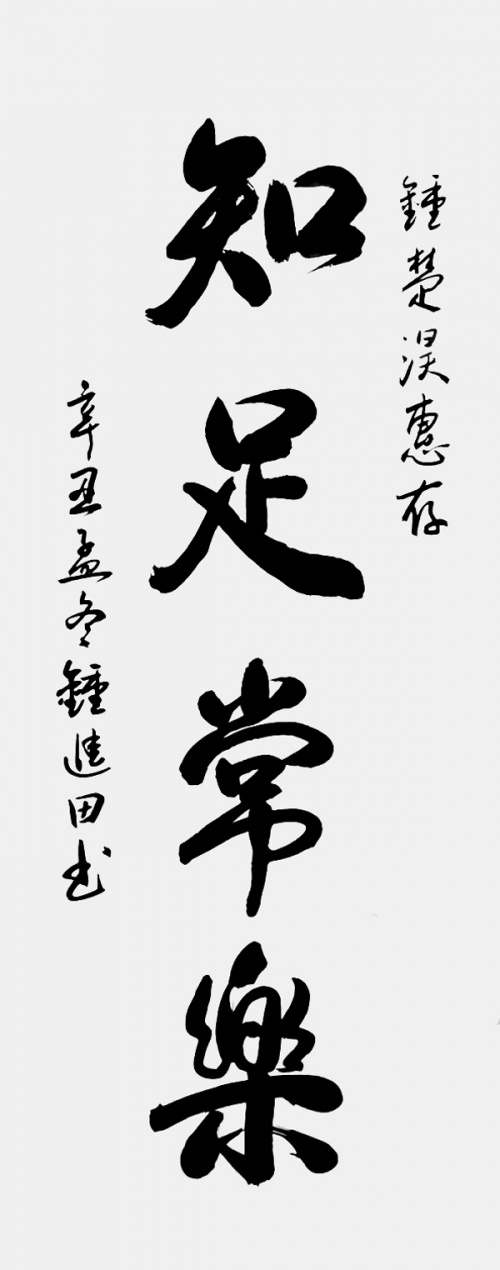 鍾楚淏惠存
知足常樂
辛丑孟冬鍾進田书